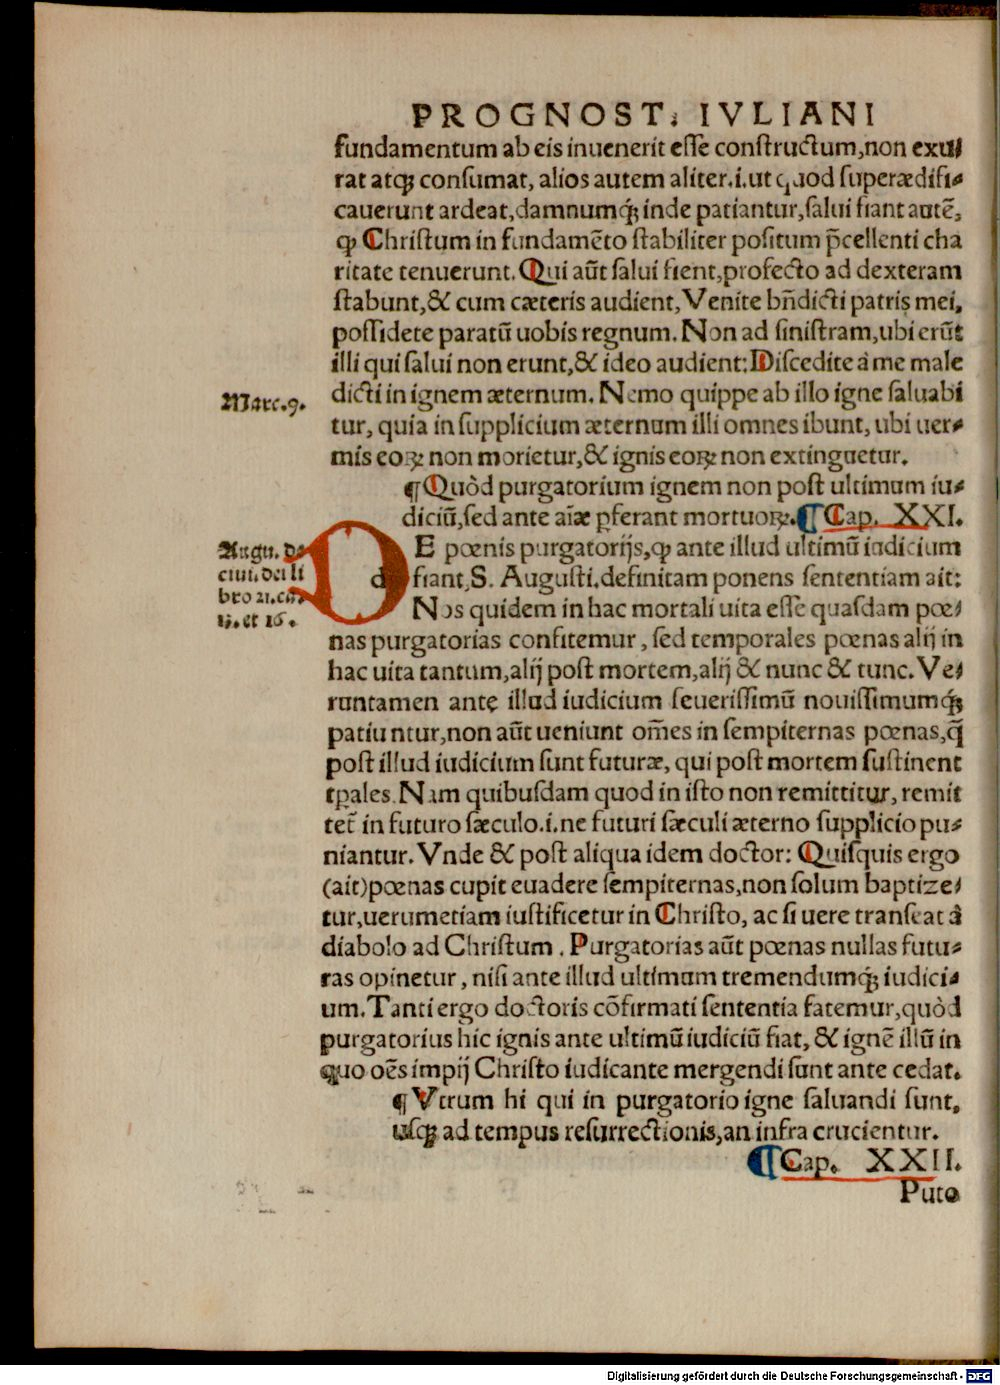 PROGNOST. IVLIANI
fundamentum ab eis inuenerit esse constructum, non exu⸗
rat atqꝫ consumat, alios autem aliter.i.ut quod superædifi⸗
cauerunt ardeat, damnumqꝫ́ inde patiantur, salui fiant autē,
ꝙ Christum in fundamēto stabiliter positum p̄cellenti cha
ritate tenuerunt. Qui aūt salui fient, profecto ad dexteram
stabunt, & cum cæteris audient, Venite bn̄dicti patris mei,
possidete paratū uobis regnum. Non ad sinistram, ubi erūt
illi qui salui non erunt, & ideo audient: Discedite à me male
dicti in ignem æternum. Nemo quippe ab illo igne saluabi
Marc.9.
tur, quia in supplicium æternum illi omnes ibunt, ubi uer⸗
mis eoꝝ non morietur, & ignis eoꝝ non extinguetur.
¶ Quòd purgatorium ignem non post ultimum iu⸗
diciū, sed ante aīæ ꝑferant mortuoꝝ. ¶ Cap. XXI.
Augu. de
ciui. dei li
bro 21. ca.
13. et 16.
d
DE pœnis purgatorijs, ꝙ ante illud ultimū iudicium
fiant, S. Augusti. definitam ponens sententiam ait:
Nos quidem in hac mortali uita esse quasdam pœ⸗
nas purgatorias confitemur, sed temporales pœnas alij in
hac uita tantum, alij post mortem, alij & nunc & tunc. Ve⸗
runtamen ante illud iudicium seuerissimū nouissimumqꝫ́
patiuntur, non aūt ueniunt om̄es in sempiternas pœnas, q̄
post illud iudicium sunt futuræ, qui post mortem sustinent
tꝑales. Nam quibusdam quod in isto non remittitur, remit
tet̄ in futuro sæculo.i.ne futuri sæculi æterno supplicio pu⸗
niantur. Vnde & post aliqua idem doctor: Quisquis ergo
(ait) pœnas cupit euadere sempiternas, non solum baptize⸗
tur, uerumetiam iustificetur in Christo, ac si uere transeat à
diabolo ad Christum. Purgatorias aūt pœnas nullas futu⸗
ras opinetur, nisi ante illud ultimum tremendumqꝫ́ iudici⸗
um. Tanti ergo doctoris cōfirmati sententia fatemur, quòd
purgatorius hic ignis ante ultimū iudiciū fiat, & ignē illū in
quo oēs impij Christo iudicante mergendi sunt ante cedat.
¶ Vtrum hi qui in purgatorio igne saluandi sunt,
usqꝫ ad tempus resurrectionis, an infra crucientur.
¶ Cap. XXII.
Puto
Digitalisierung gefördert durch die Deutsche Forschungsgemeinschaft - DFG